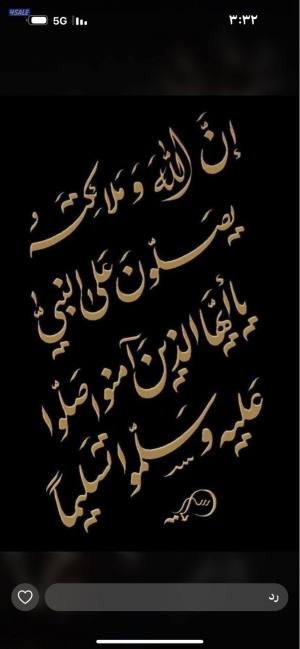 4SALE
5G
٣:٣٢
إِنَّ اللَّهَ وَمَلَائِكَتَهُ
يُصَلُّونَ عَلَى النَّبِيِّ
يَا أَيُّهَا الَّذِينَ آمَنُوا صَلُّوا
عَلَيْهِ وَسَلِّمُوا تَسْلِيمًا
رد